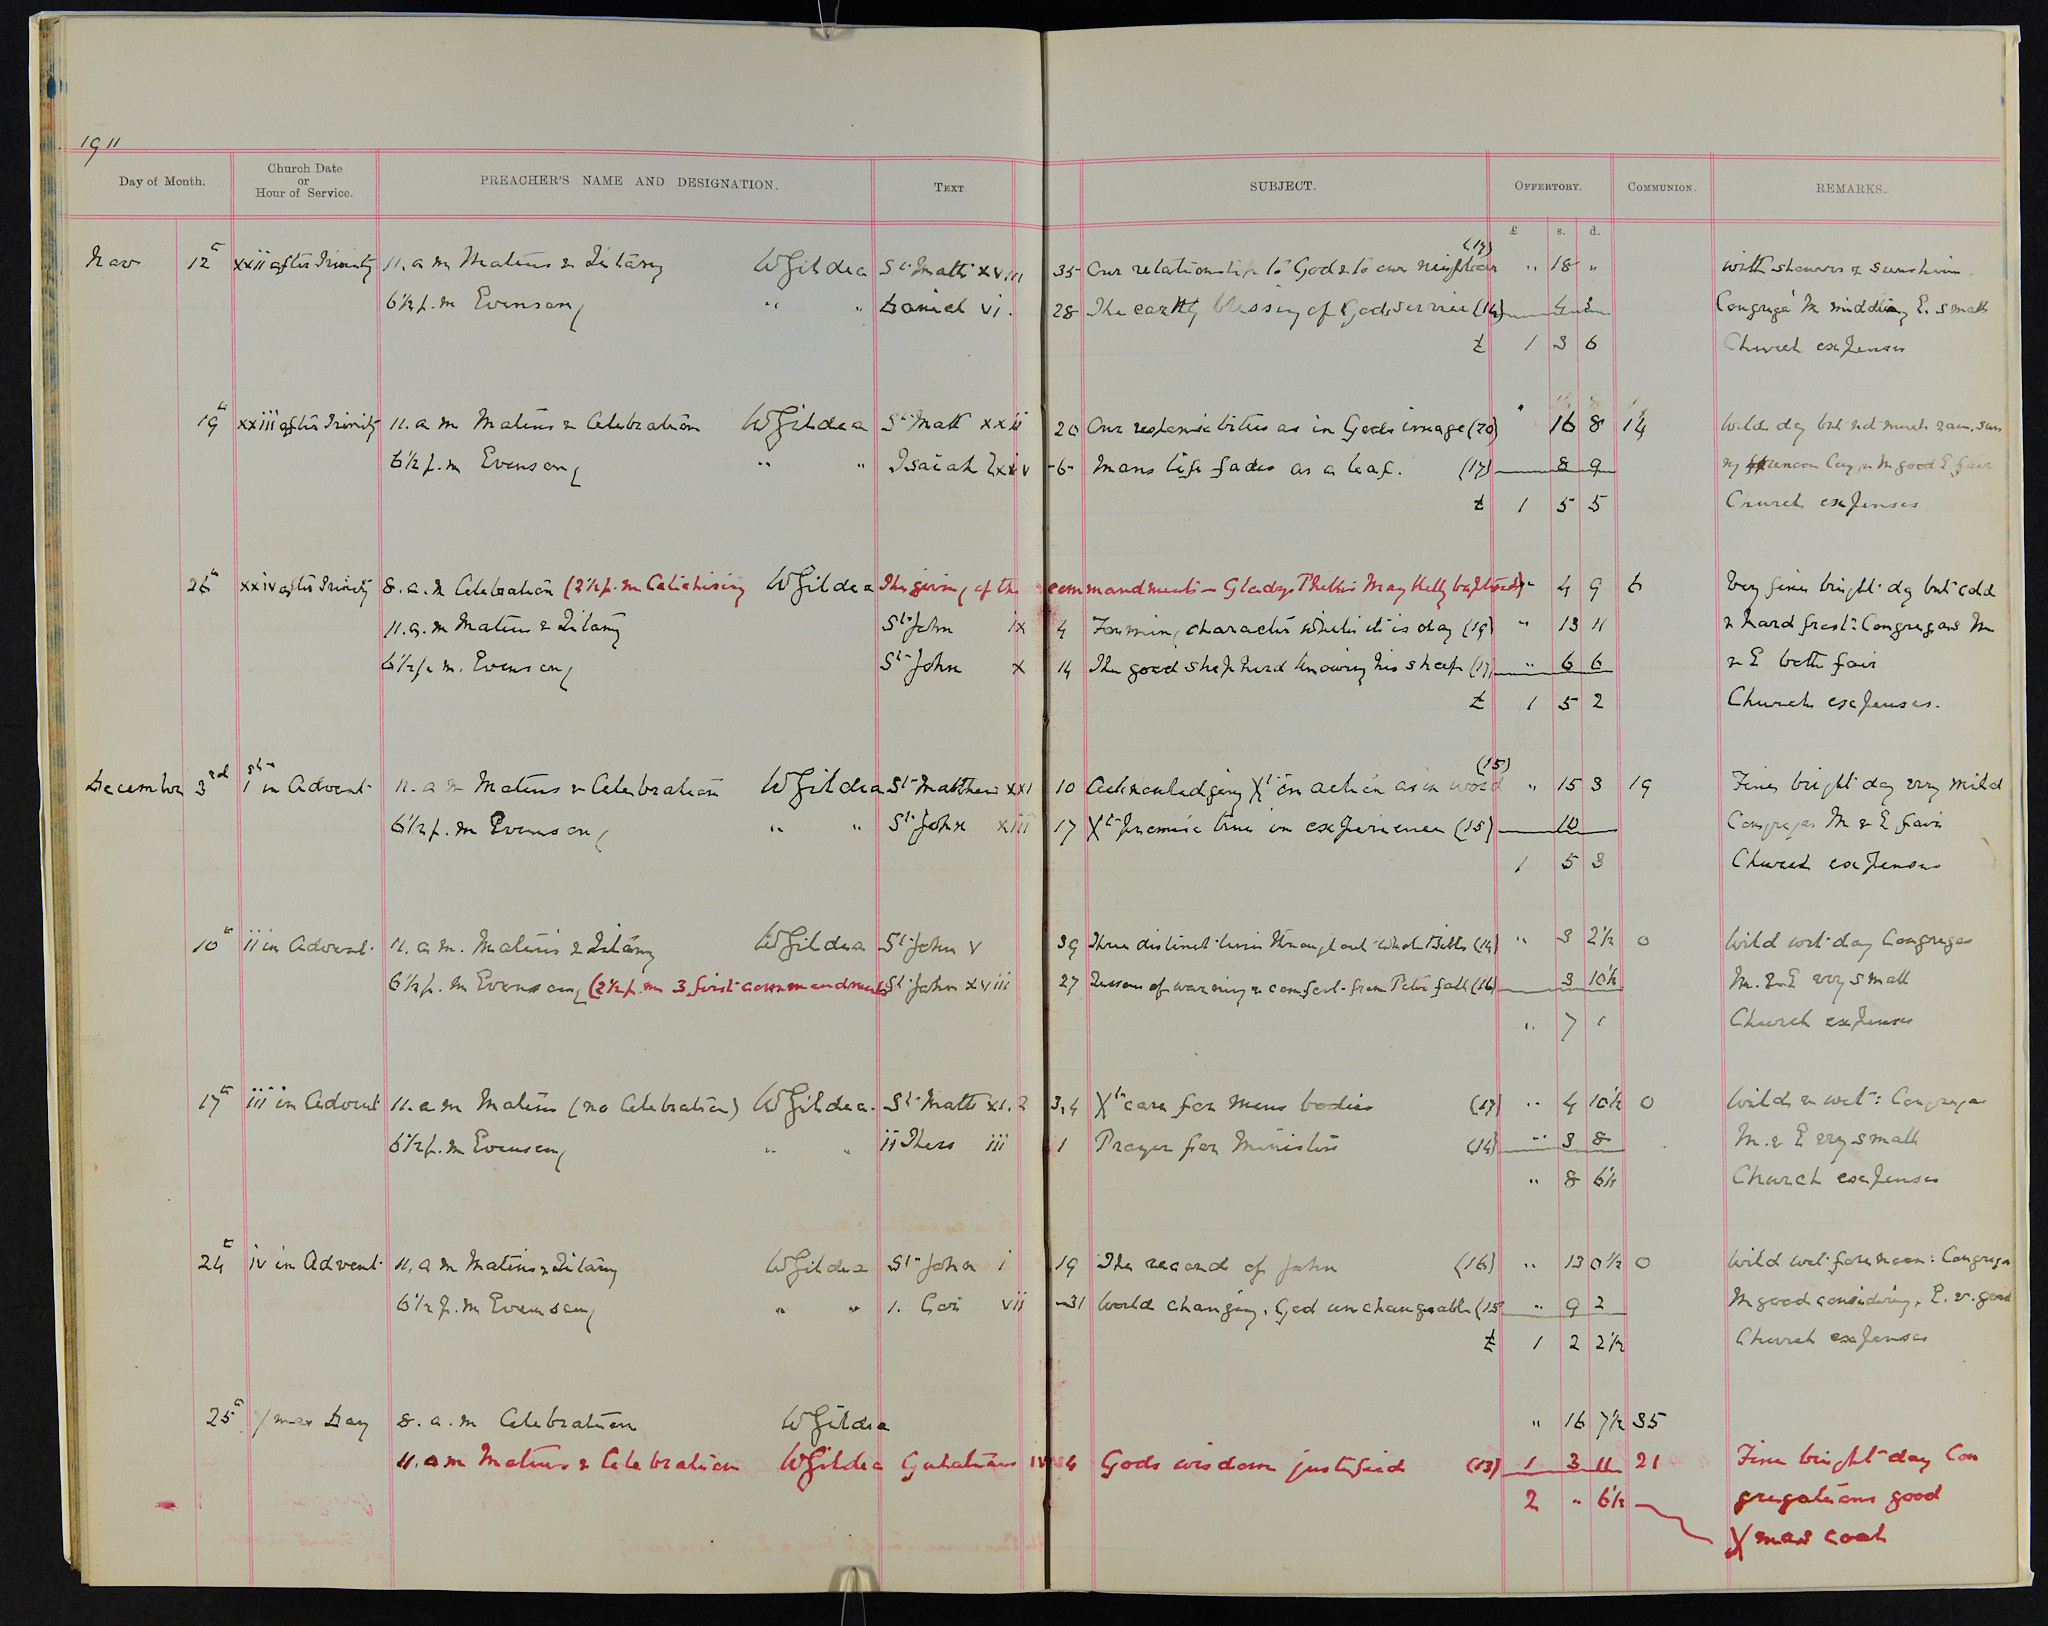 1911
Day of Month. Church Date or Hour of Service. PREACHER'S NAME AND DESIGNATION. TEXT. SUBJECT. OFFERTORY. COMMUNION. REMARKS.
£ s. d.
Nov 12th xxii after Trinity 11. a m Matins & Litany WGildea St. Matt xviii 35 Our relationship to God & to our neighbour (17) " 18 " with showers & sunshine
6½ p.m Evensong " " Daniel vi. 28 The earthly blessing of Gods service (14) Congrega M middling E. small
£ 1 3 6 Church expenses
19th xxiii after Trinity 11. a m Matins & Celebration WGildea St. Matt xxii 20 Our responsibilities as in Gods image (20) " 16 8 14 Wild day but not much rain.
6½ p.m Evensong " " Isaiah lxiv -6- Mans life fades as a leaf. (17) 8 9 M good E fair
£ 1 5 5 Church expenses
26th xxiv after Trinity 8. a. m Celebration (2½ p. m Catichising WGildea The giving of the commandments - Gladys Phillis May Kelly baptised) " 4 9 6 Very fine bright day but cold
11. a. m Matins & Litany St. John ix 4 Forming character whilst it is day (19) " 13 11 & hard frost: Congregans M
6½ p. m. Evensong St. John x 14 The good shepherd knowing his sheep (17) " 6 6 & E both fair
£ 1 5 2 Church expenses.
December 3rd 1st in Advent 11. a m Matins & Celebration WGildea St. Matthew xxi 10 Acknowledging Xt in action as in word (15) " 15 3 19 Fine bright day very mild
6½ p. m Evensong " " St. John xiii 17 Xts promise true in experience (15) 10 Congregas M & E fair
1 5 3 Church expenses
10th ii in Advent 11. a m. Matins & Litany WGildea St. John v 39 Three distinct lines throughout whole Bible (14) " 3 2½ 0 Wild wet day Congregas
6½ p. m Evensong (2½ p. m 3 first commandments St. John xviii 27 Lessons of warning & comfort from Peters fall (16) 3 10½ M. & E very small
" 7 1 Church expenses
17th iii in Advent 11. a m Matins (no Celebration) WGildea. St. Matt xi. 2 3.4 Xts care for Mens bodies (17) " 4 10½ 0 Wild & wet: Congregas
6½ p. m Evensong " " ii Thess iii 1 Prayer for Ministers (14) " 3 8 M. & E very small
" 8 6½ Church expenses
24th iv in Advent 11. a m Matins & Litany WGildea St. John i 19 The record of John (16) " 13 0½ 0 Wild wet forenoon: Congrega
6½ p. m Evensong " " 1. Cor vii -31 World changing. God unchangeable (15 " 9 2 M good considering. E. v. good
£ 1 2 2½ Church expenses
25th Xmas Day 8. a. m Celebration WGildea " 16 7½ 35
11. a m Matins & Celebration WGildea Galatians iv 4 Gods wisdom justified (13) 1 3 11 21 Fine bright day Con
2 " 6½ gregations good
Xmas coal